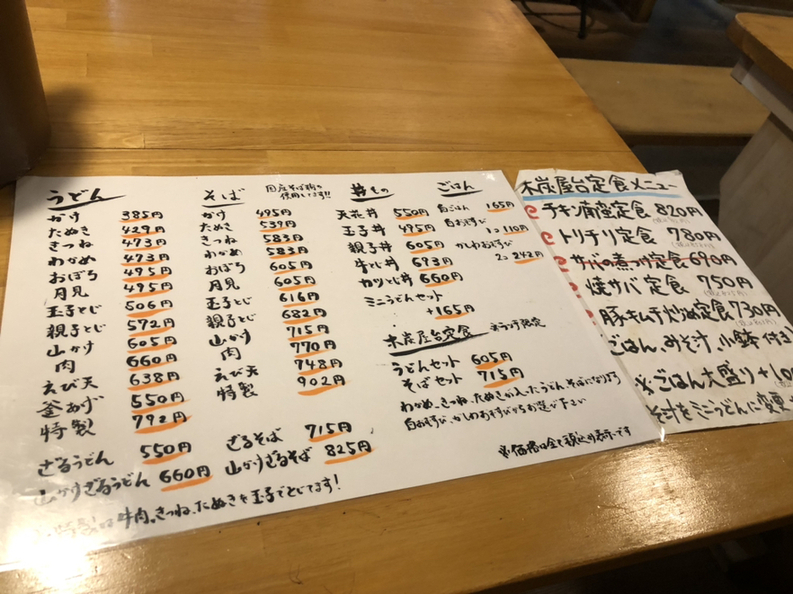 うどん
かけ 385円
たぬき 429円
きつね 473円
わかめ 473円
おぼろ 495円
月見 495円
玉子とじ 506円
親子とじ 572円
山かけ 605円
肉 660円
えび天 638円
釜あげ 550円
特製 792円
ざるうどん 550円
山かけざるうどん 660円
牛肉、きつね、たぬきを玉子でとじてます!
そば
国産そば粉を
使用してます!!
かけ 495円
たぬき 539円
きつね 583円
わかめ 583円
おぼろ 605円
月見 605円
玉子とじ 616円
親子とじ 682円
山かけ 715円
肉 770円
えび天 748円
特製 902円
ざるそば 715円
山かけざるそば 825円
丼もの
天花丼 550円
玉子丼 495円
親子丼 605円
牛とじ丼 693円
カツとじ丼 660円
ミニうどんセット
+165円
ごはん
白ごはん 165円
白おむすび
1コ 110円
かしわおむすび
2コ 242円
木炭屋台定食
うどんセット 605円
そばセット 715円
わかめ、きつね、たぬきが入ったうどん、そばになります
白おむすび、かしわおむすびからお選び下さい
※価格は全て税込み表示です
木炭屋台定食メニュー
チキン南蛮定食 820円
トリチリ定食 780円
サバの煮つけ定食 690円
焼サバ定食 750円
豚キムチ炒め定食 730円
ごはん、みそ汁、小鉢付き
※ごはん大盛り+10
そ汁をミニうどんに変更